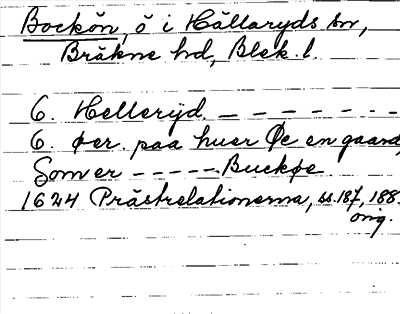 Bockön, ö i Hällaryds sn,
Bräkne hd, Blek. l.
6. Hellerijd. — — — — — — —
6. øer. paa huer Øe en gaard,
Som er — — — — — Buckøe
1624 Prästrelationerna, ss. 187, 188.
orig.